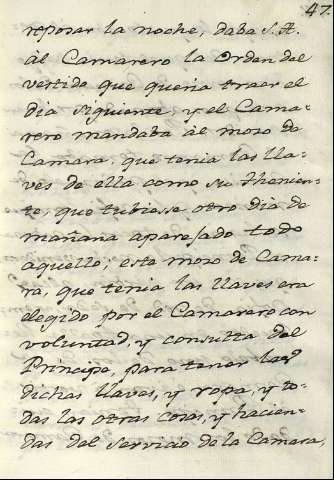 47.
reposar la noche, daba S.A.
àl Camarero la Orden del
vestido que queria traer el
dia siguiente, y el Cama-
rero mandaba àl mozo de
Camara, que tenia las lla-
ves de ella como su Thenien-
te, que tubiesse otro dia de
mañana aparejado todo
aquello; este mozo de Cama-
ra, que tenia las llaves era
elegido por el Camarero con
voluntad, y consulta del
Principe, para tener las
dichas llaves, y ropa, y to-
das las otras cosas, y hacien-
das del Servicio de la Camara,